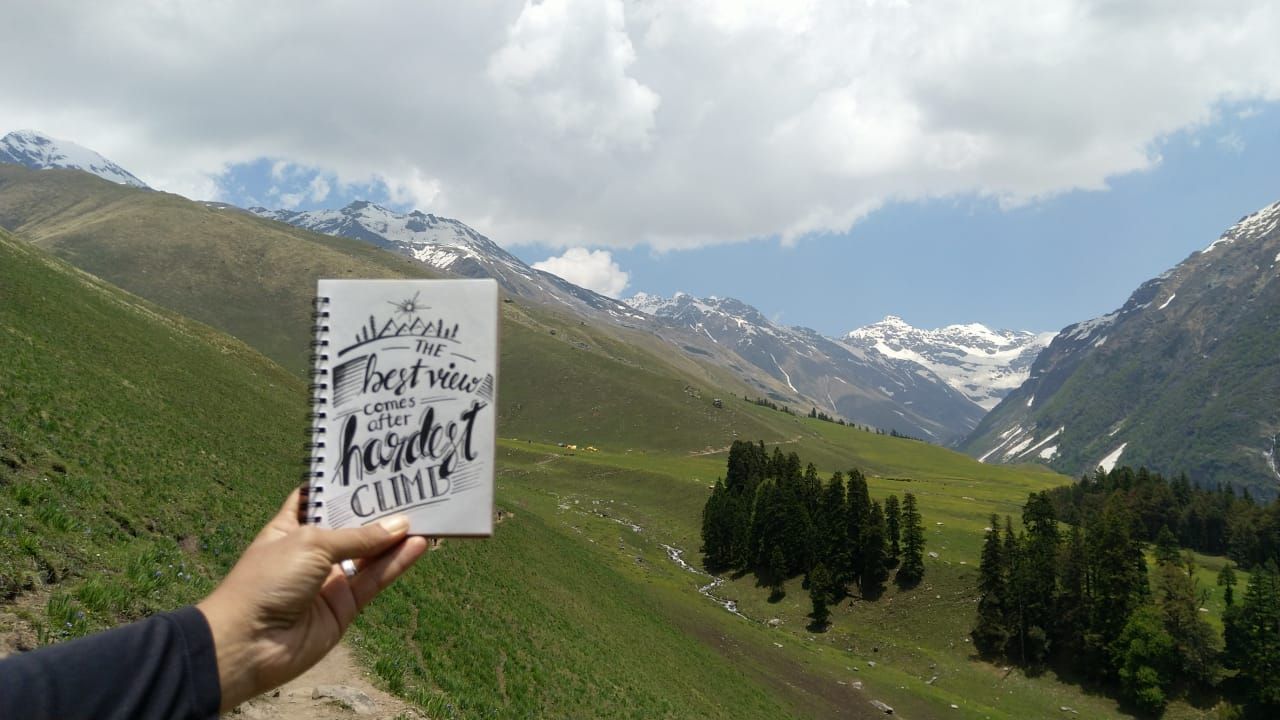 THE
best view
comes
after
hardest
CLIMB